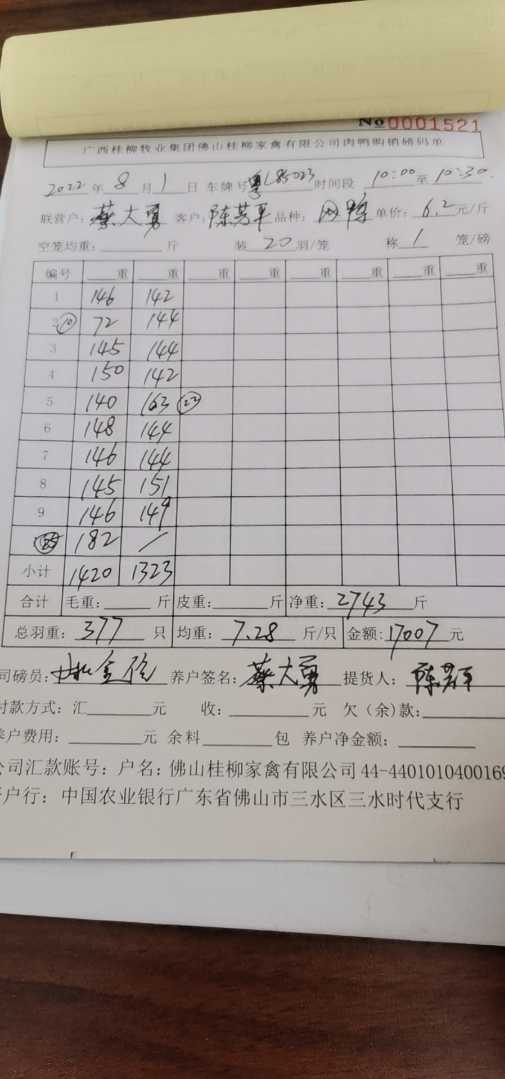 No 0001521
广西桂柳牧业集团佛山桂柳家禽有限公司肉鸭购销磅码单
2022年8月1日 车牌号 时间段 10:00至10:30
联营户:蔡大勇 客户:陈芳平 品种: 单价:6.2元/斤
空笼均重: 斤 装20羽/笼 称1笼/磅
编号 重 重 重 重 重 重 重
1 146 142
2 ⑩ 72 144
3 145 144
4 150 142
5 140 163 ㉓
6 148 144
7 146 144
8 145 151
9 146 149
182 /
小计 1420 1323
合计 毛重: 斤 皮重: 斤 净重:2743斤
总羽重:377只 均重:7.28斤/只 金额:17007元
司磅员: 养户签名:蔡大勇 提货人:
付款方式:汇 元 收: 元 欠(余)款:
养户费用: 元 余料 包 养户净金额:
公司汇款账号:户名:佛山桂柳家禽有限公司 44-4401010400169
开户行:中国农业银行广东省佛山市三水区三水时代支行